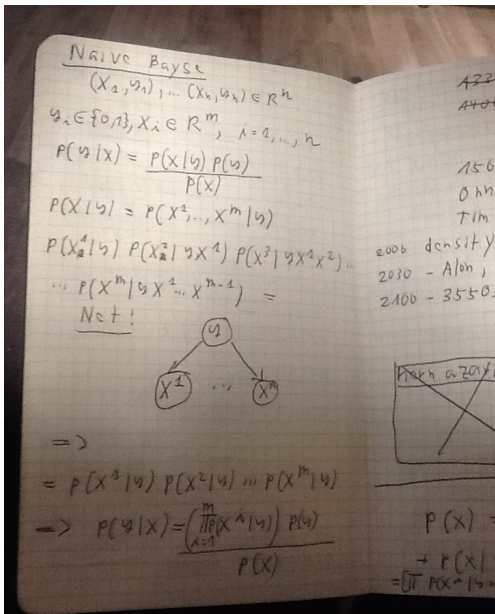 Naive Bayse
(X₁, y₁), ... (Xₙ, yₙ) ∈ Rⁿ
yᵢ ∈ {0,1}, Xᵢ ∈ Rᵐ, i=1,...,n
P(y|x) = P(X|y) P(y) / P(X)
P(X|y) = P(X¹,..., Xᵐ|y)
P(X¹|y) P(X²|yX¹) P(X³|yX¹X²)...
... P(Xᵐ|yX¹...Xᵐ⁻¹) =
Net:
y
X¹ ... Xᵐ
=>
= P(X¹|y) P(X²|y) ... P(Xᵐ|y)
=> P(y|X) = (∏ᵢ₌₁ᵐ P(Xⁱ|y)) P(y) / P(X)
A33
A40
150
Ohn
Tim
2000 density
2030 - Alon,
2100 - 3550
P(X) =
+ P(X|
=[∏ P(Xⁱ|y=